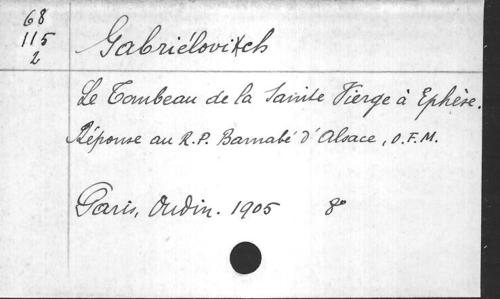 68
115
2
Gabriélovitch
Le Tombeau de la Sainte Vierge à Ephèse.
Réponse au R.P. Barnabé d'Alsace, O.F.M.
Paris, Oudin. 1905 8°